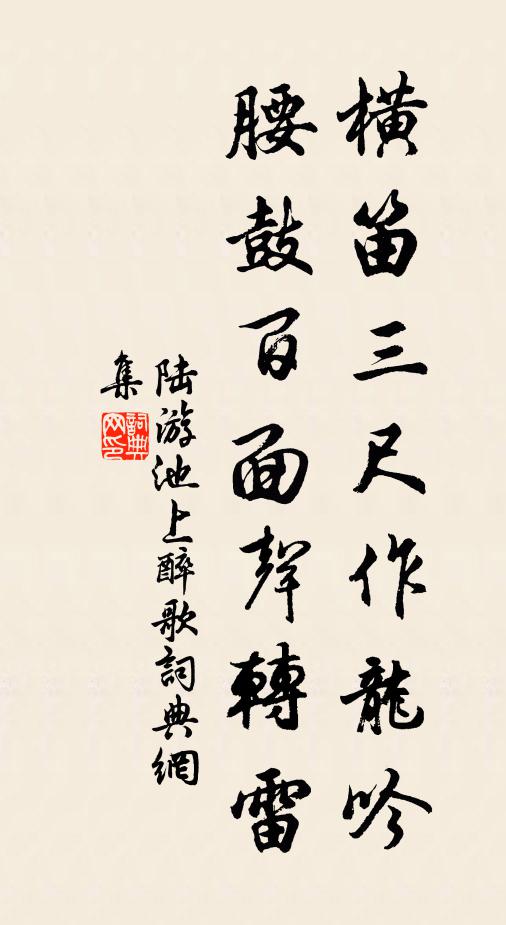 橫笛三尺作龍吟
腰鼓百面聲轉雷
陆游池上醉歌詞典網
集
詞典
网印